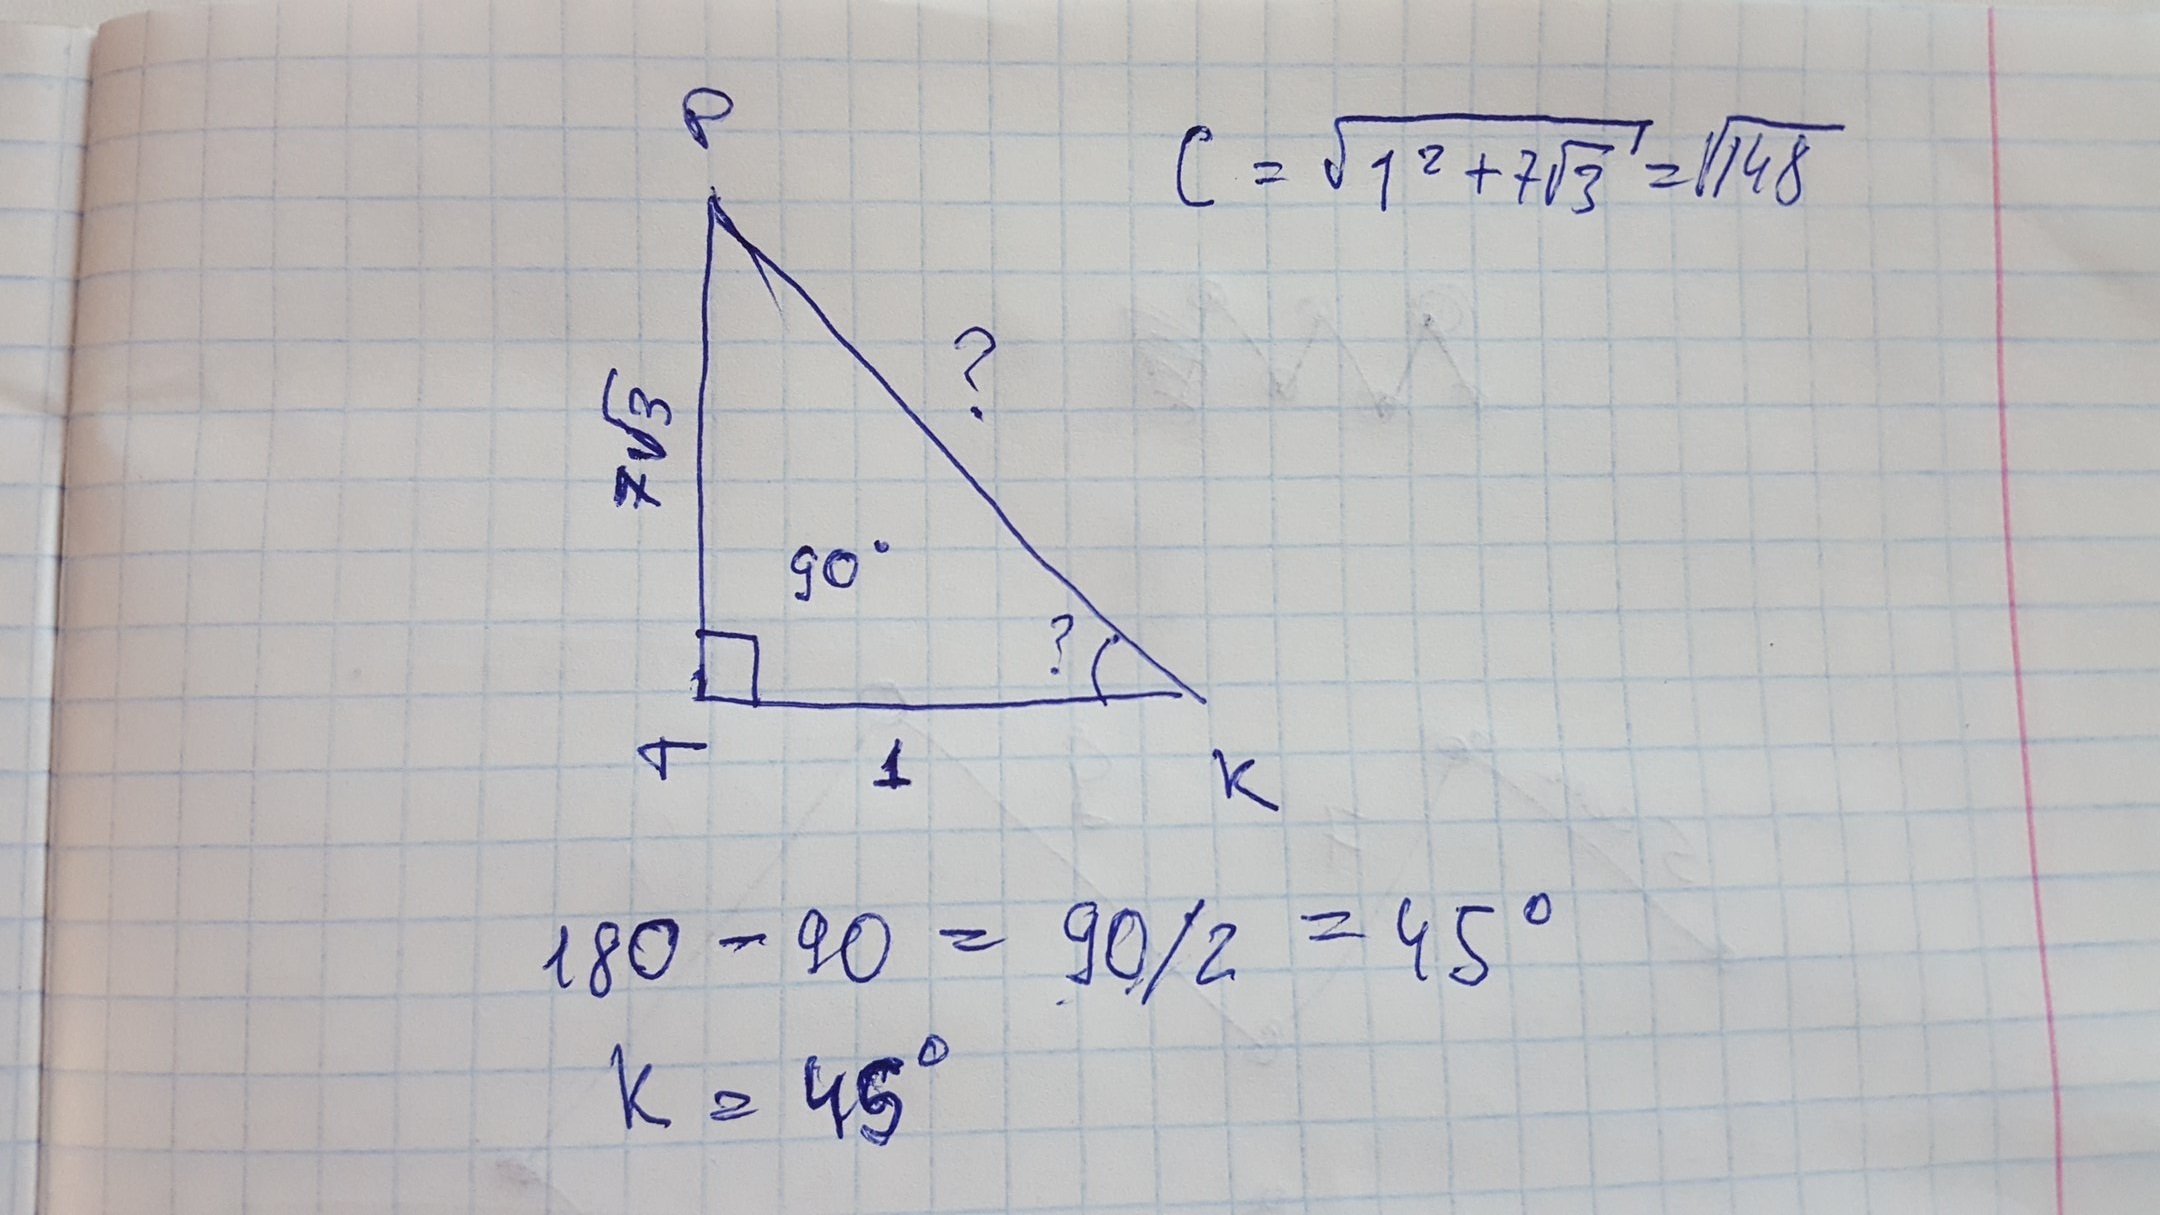 P
C = √(1² + 7√3) = √148
?
7√3
90°
?
T
1
K
180 - 90 = 90/2 = 45°
K = 45°